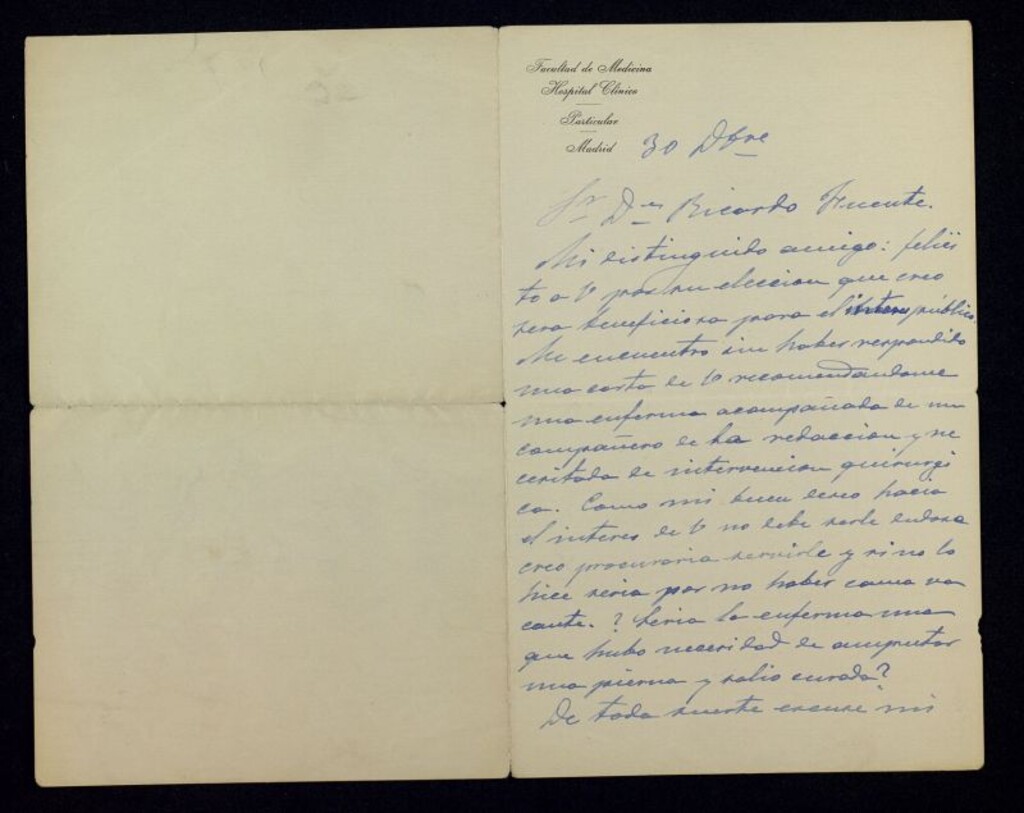 Facultad de Medicina
Hospital Clínico
Particular
Madrid
30 Dbre
Sr Dn Ricardo Fuente.
Mi distinguido amigo: felici
to a V por su eleccion que creo
sera beneficiosa para el interes público.
Me encuentro sin haber respondido
una carta de V recomendandome
una enferma acompañada de un
compañero de la redaccion y ne
cesitada de intervencion quirurgi
ca. Como mi buen deseo hacia
el interes de V no debe serle dudosa
creo procuraria servirle y si no lo
hice seria por no haber cama va
cante. ? Seria la enferma una
que hubo necesidad de amputar
una pierna y salio curada?
De toda suerte excuse mi